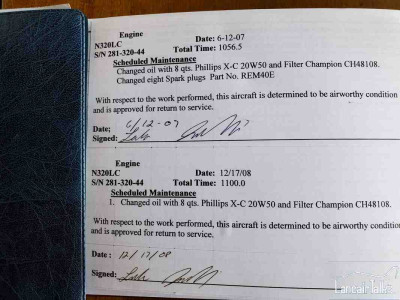 Engine
N320LC Date: 6-12-07
S/N 281-320-44 Total Time: 1056.5
Scheduled Maintenance
Changed oil with 8 qts. Phillips X-C 20W50 and Filter Champion CH48108.
Changed eight Spark plugs Part No. REM40E
With respect to the work performed, this aircraft is determined to be airworthy condition
and is approved for return to service.
Date; 6/12-07
Signed:
Engine
N320LC Date: 12/17/08
S/N 281-320-44 Total Time: 1100.0
Scheduled Maintenance
1. Changed oil with 8 qts. Phillips X-C 20W50 and Filter Champion CH48108.
With respect to the work performed, this aircraft is determined to be airworthy condition
and is approved for return to service.
Date: 12/17/08
Signed:
LancairTalk